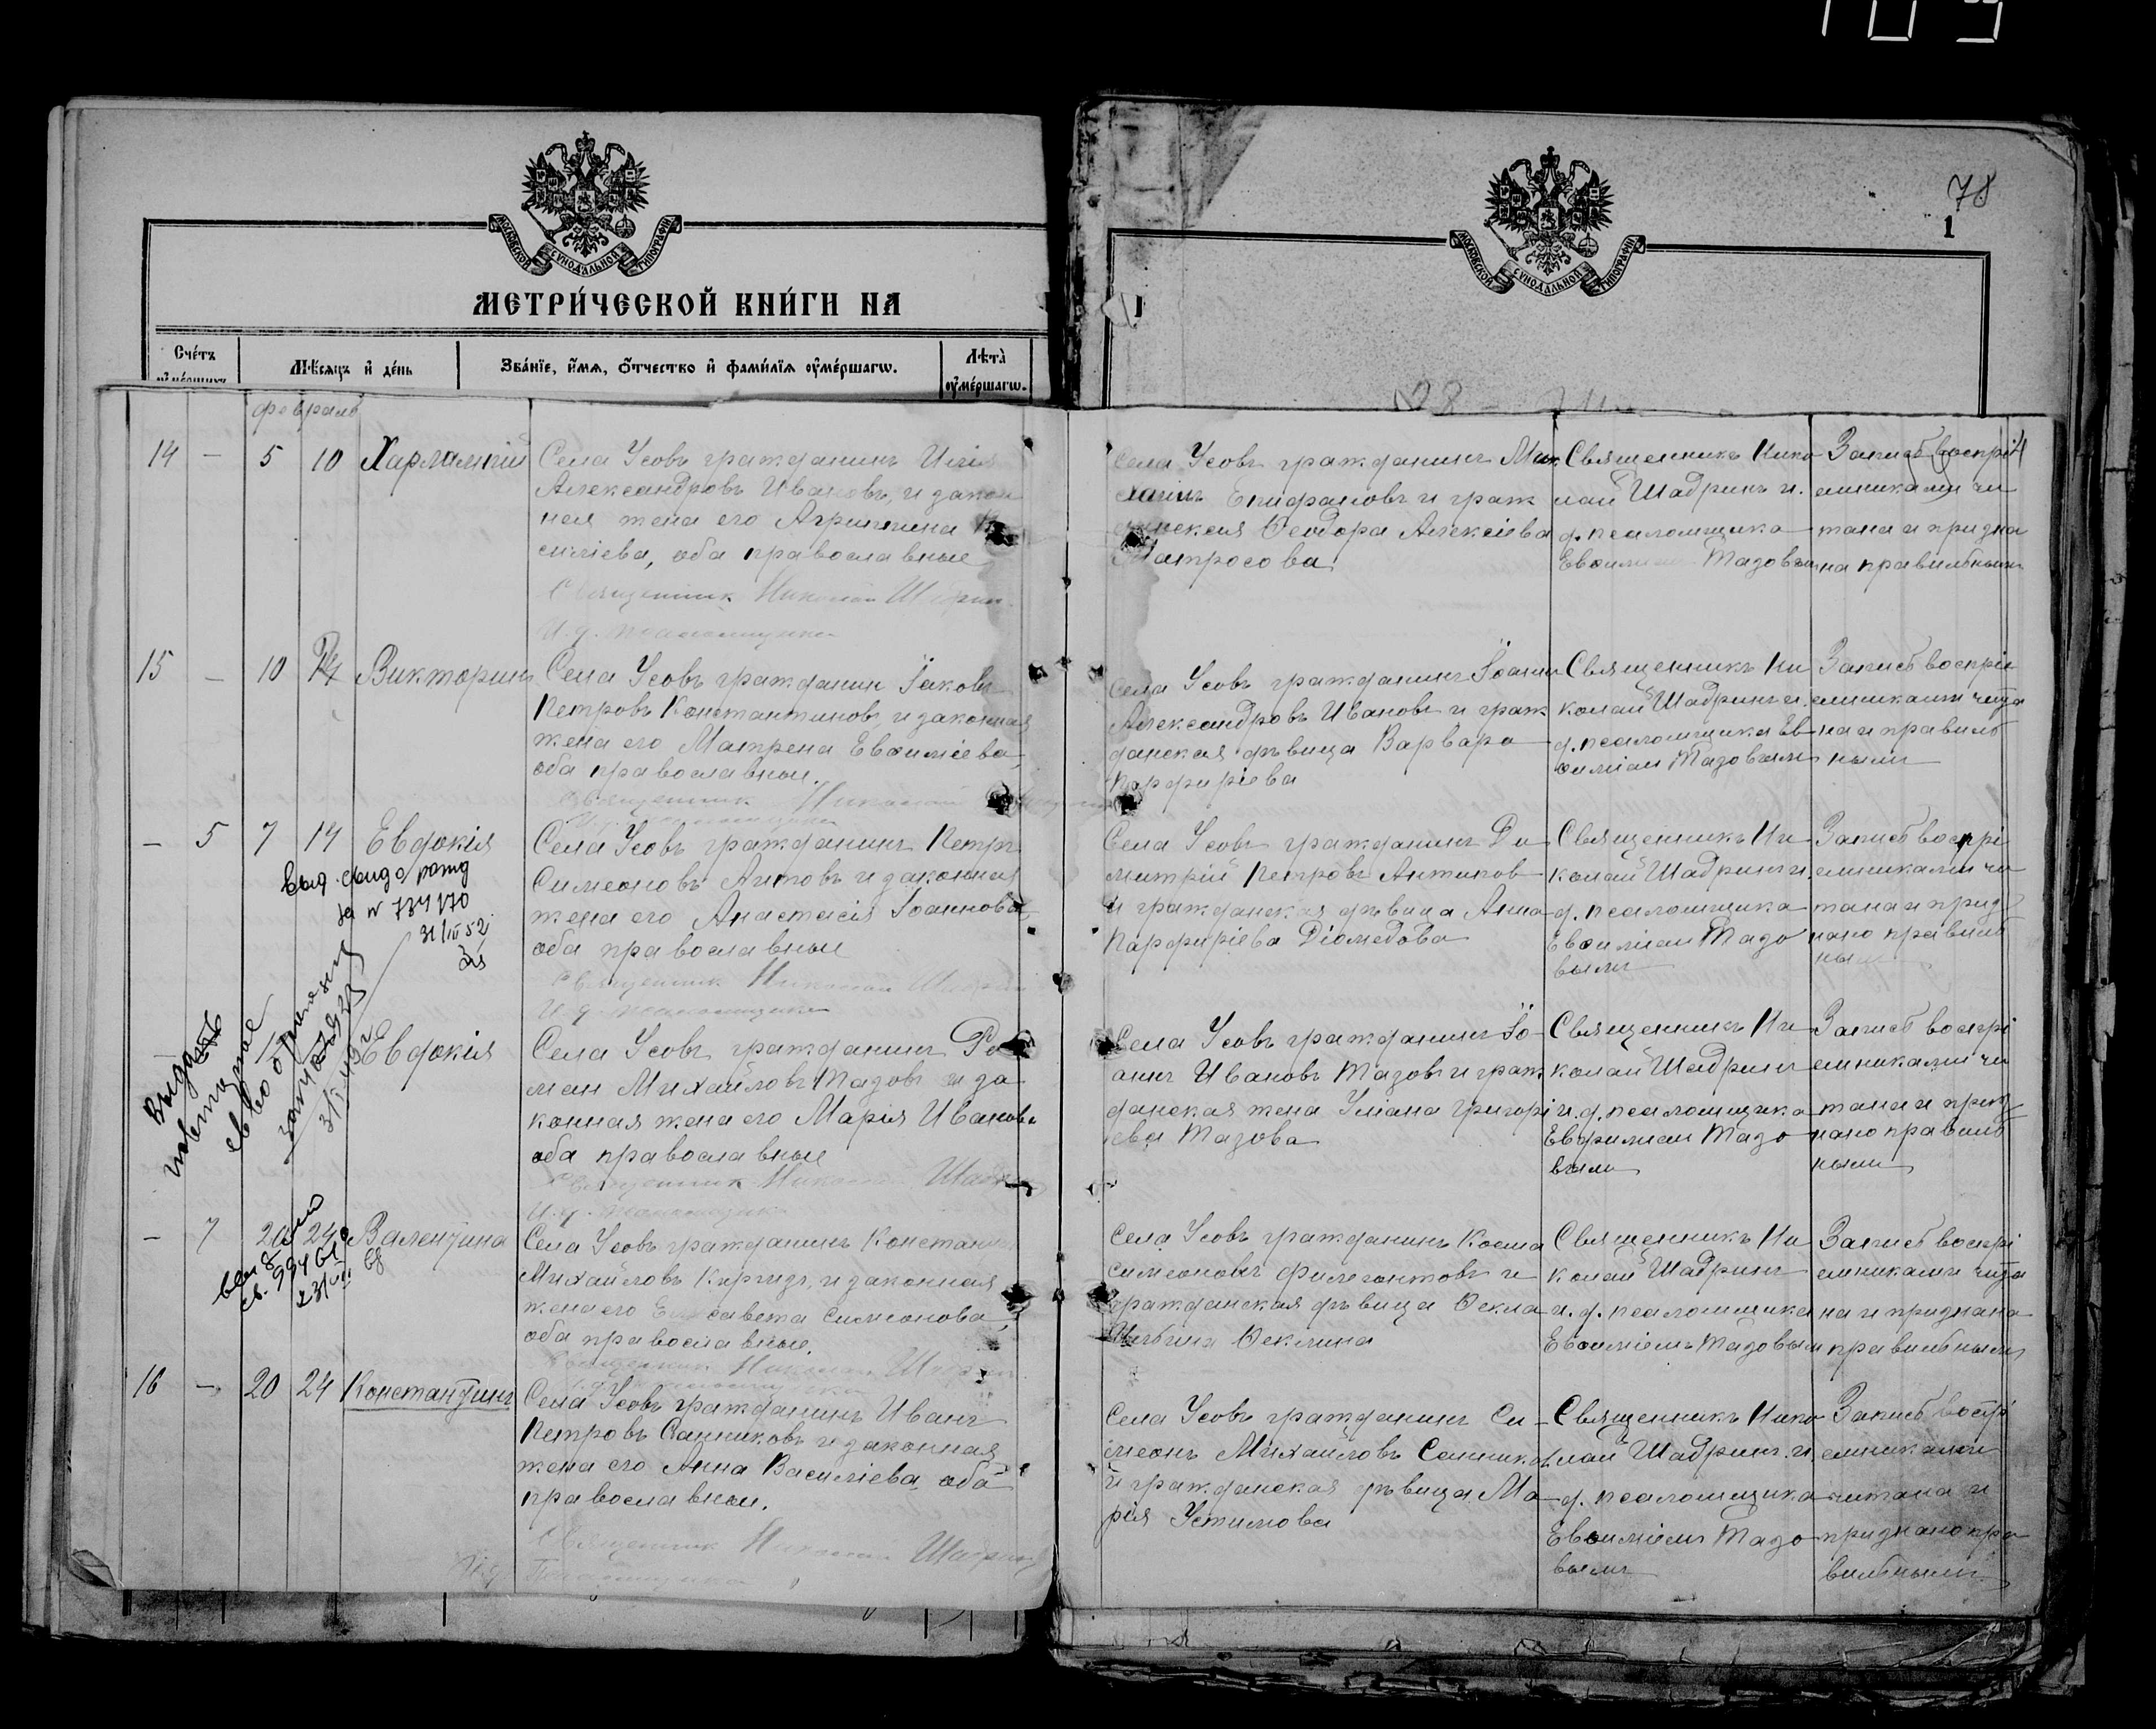 78
1
МОСКОВСКОЙ СѴНОДАЛЬНОЙ ТИПОГРАФІИ
МОСКОВСКОЙ СѴНОДАЛЬНОЙ ТИПОГРАФІИ
МЕТРИ́ЧЕСКОЙ КНИ́ГИ НА
Сче́тъ
Мѣсяцъ и де́нь
Зва́нїе, и́мя, о́тчество и фами́лїя ᲂуме́ршагѡ.
Лѣта̀
ᲂуме́ршагѡ.
февраль
14 — 5 10 Харлампій
Села Усовъ гражданинъ
Александровъ Ивановъ, и закон
ная жена его Агриппина
силіева, оба православные
Священник Николай
И. д. псаломщика
Села Усовъ гражданинъ Ми
хаилъ Епифановъ и граж
данская Ѳеодора Алексіева
Матросова
Священникъ Нико
лай Шадринъ и.
д. псаломщика
Тазовым
Запись воспрі
емниками чи
тана и призна
на правильными
15 — 10 14 Викторинъ
Села Усовъ гражданин Іаковъ
Петровъ Константиновъ и законная
жена его Матрена Евѳиміева,
оба православные.
Священник Николай
Села Усовъ гражданинъ Іоаннъ
Александровъ Ивановъ и граж
данская дѣвица Варвара
Порфиріева
Священникъ Ни
колай Шадринъ и.
д. псаломщика Ев
ѳиміем Тазовымъ
Запись воспріе
емниками чита
на и правиль
ными
— 5 7 14 Евдокія
Села Усовъ гражданинъ Петръ
Симеоновъ Антовъ и законная
жена его Анастасія Іоаннова,
оба православные
Священник Николай
И. д. псаломщика
Села Усовъ гражданинъ Ди
митрій Петровъ Антиков
и гражданская дѣвица Анна
Парфиріева Діомедова
Священникъ Ни
колай Шадринъ и.
д. псаломщика
Евѳиміем Тазо
вымъ
Запись воспрі
емниками чи
тана и приз
нано правиль
ны
31/III 52
Выдать
повторное
св во о
Евдокія
Села Усовъ гражданинъ Ро
ман Михайловъ Тазовъ и за
конная жена его Марія Иванова
оба православные
Священник Николай
И. д. псаломщика
Села Усовъ гражданинъ Іо-
аннъ Ивановъ Тазовъ и граж
данская жена Уліана Григорі
ева Тазова
Священникъ Ни
колай Шадринъ
и. д. псаломщика
Евфиміем Тазо
вымъ
Запись воспрі
емниками чи
тана и приз
нано правиль
ными
— 7 20 24 Валентина
Села Усовъ гражданинъ Констант
Михайловъ Киргизъ, и законная
жена его Елисавета Симеонова,
оба православные.
Священник Николай
Села Усовъ гражданинъ Косма
Симеоновъ Филегонтовъ и
гражданская дѣвица Ѳекла
Ѳеклина
Священникъ Ни
колай Шадринъ
и. д. псаломщика
Евѳиміемъ Тазовым
Запись воспрі
емниками чита
на и признана
правильными
16 — 20 24 Константинъ
Села Усовъ гражданинъ Иванъ
Петровъ Санниковъ и законная
жена его Анна Василіева, оба
православные.
Священник Николай Шадринъ
И. д. Псаломщика
Села Усовъ гражданинъ Си-
меонъ Михайловъ Санников
и гражданская дѣвица Ма
рія Устинова
Священникъ Нико
лай Шадринъ. и.
д. псаломщика
Евѳиміемъ Тазо
вымъ
Запись воспрі
емниками
читана и
признано пра
вильными